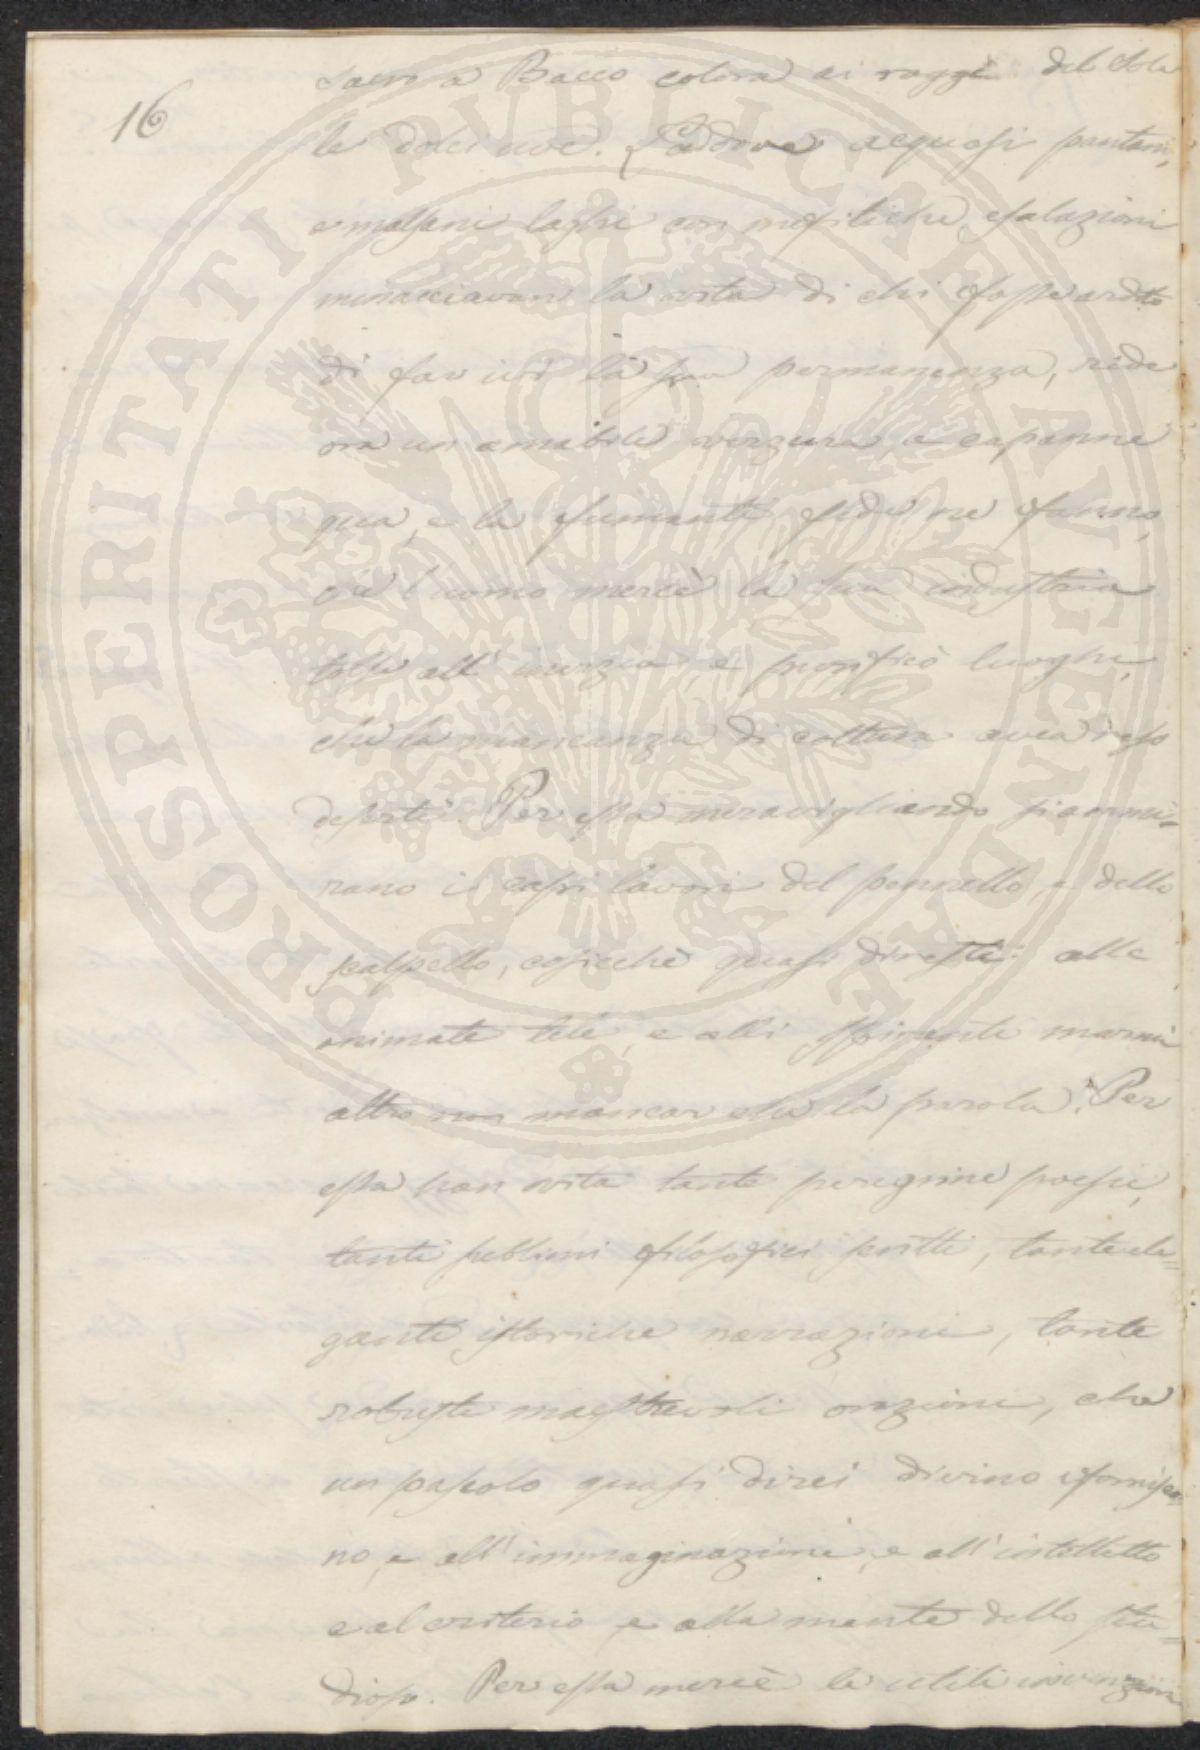 16
sacri a Bacco colora ai raggi del Sole
le dolci uve. Là dove acquosi pantani,
e malsani laghi con mefitiche esalazioni
minacciavan la vita di chi fosse ardito
di far ivi la sua permanenza, ride
ora un amabile verzura, e capanne
qua, e la fumanti fede ne fanno,
che l'uomo mercè la sua industria
tolse all'inerzia, e purificò luoghi,
che la mancanza di coltura avea reso
deserti. Per essa meravigliando si ammi=
rano i capi lavori del pennello, e dello
scalpello, cosicchè quasi diresti: alle
animate tele, e alli spiranti marmi
altro non mancar che la parola. Per
essa han vita tante peregrine poesie,
tanti sublimi filosofici scritti, tante ele=
ganti istoriche narrazioni, tante
robuste maestrevoli orazioni, che
un pascolo quasi direi divino fornisco=
no, e all'immaginazione, e all'intelletto
e al criterio, e alla mente dello stu=
dioso. Per essa mercè le utili invenzioni
PROSPERITATI PVBLICAE AVGENDAE